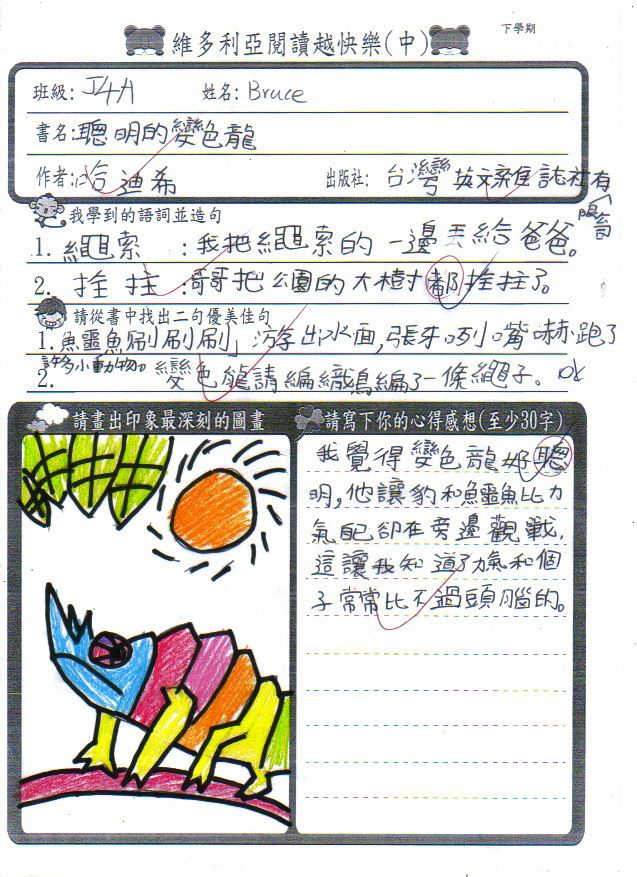 下學期
維多利亞閱讀越快樂(中)
班級: J4A 姓名: Bruce
書名: 聰明的變色龍
作者: 哈迪希 出版社: 台灣英文雜誌社有限
我學到的語詞並造句
1. 繩索 : 我把繩索的一邊丟給爸爸。
2. 拴拄 : 哥哥把公園的大樹都拴拄了。
請從書中找出二句優美佳句
1. 鱷魚刷刷刷」游出水面,張牙咧嘴嚇跑了
許多小動物。
2. 變色龍請編織鳥編了一條繩子。 ok
請畫出印象最深刻的圖畫
請寫下你的心得感想(至少30字)
我覺得變色龍好聰
明,他讓豹和鱷魚比力
氣自己卻在旁邊觀戰,
這讓我知道了力氣和個
子常常比不過頭腦的。